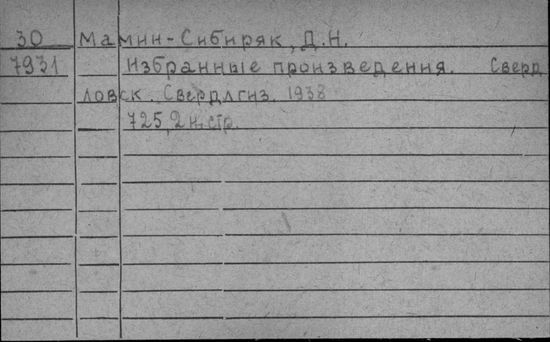 30 Мамин-Сибиряк, Д.Н.
7931 Избранные произведения. Сверд
ловск. Свердлгиз. 1938
725, 2 н. стр.